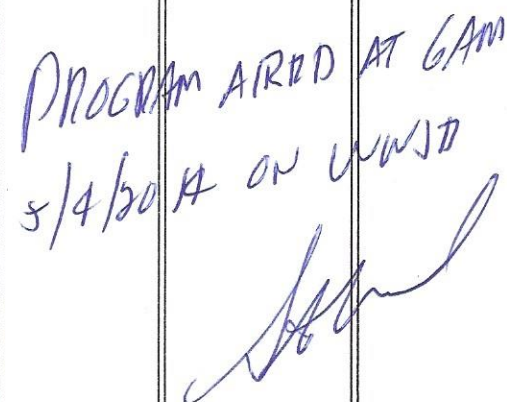 PROGRAM AIRED AT 6AM
5/4/2014 ON